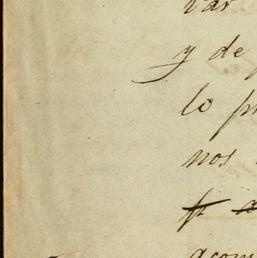 var
y de
lo
nos
acom